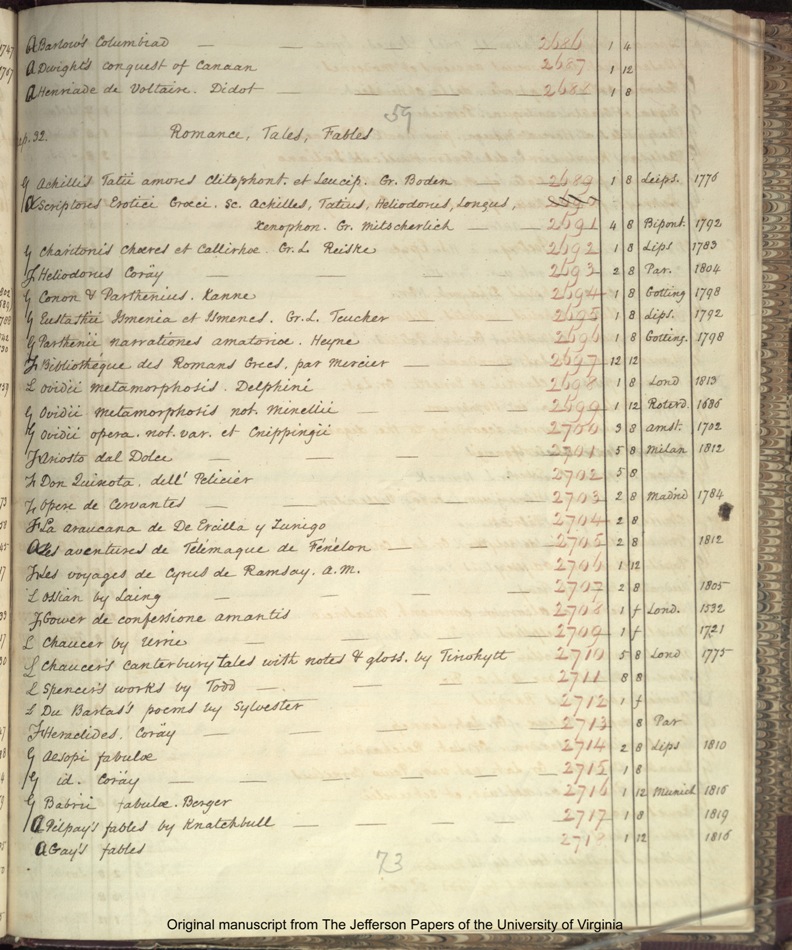 A Barlow's Columbiad — — 2686 1 4
A Dwight's conquest of Canaan 2687 1 12
A Henriade de Voltaire. Didot — — 2688 1 8
59
32. Romance, Tales, Fables
G Achillis Tatii amores Clitophont. et Leucip. Gr. Boden — 2689 1 8 Leips. 1776
A Scriptores Erotici Graeci. Sc. Achilles, Tatius, Heliodorus, Longus,
Xenophon. Gr. Mitscherlich — 2691 4 8 Bipont. 1792
G Charitonis Chaeres et Callirhoe. Gr. L. Reiske 2692 1 8 Lips 1783
F Heliodorus Coräy — — 2693 2 8 Par. 1804
G Conon & Parthenius. Kanne 2694 1 8 Gotting 1798
G Eustathii Ismenia et Ismenes. Gr. L. Teucher — 2695 1 8 Lips. 1792
G Parthenii narrationes amatoriae. Heyne 2696 1 8 Gotting. 1798
F Bibliothéque des Romans Grecs, par Mercier — 2697 12 12
L Ovidii metamorphosis. Delphini 2698 1 8 Lond 1813
G Ovidii metamorphosis not. Minellii — — 2699 1 12 Roterd. 1686
G Ovidii opera. not. var. et Cnippingii 2700 3 8 Amst. 1702
F Ariosto dal Dolce — — 2701 5 8 Milan 1812
F Don Quixota. dell' Pelicier 2702 5 8
F Opere de Cervantes — — 2703 2 8 Madrid 1784
F La Araucana de De Ercilla y Zunigo 2704 2 8
A Les aventures de Télémaque de Fénélon — — 2705 2 8 1812
F Les voyages de Cyrus de Ramsay. A.M. 2706 1 12
L Ossian by Laing — — 2707 2 8 1805
F Gower de confessione amantis 2708 1 f Lond. 1532
L Chaucer by Urrie — — 2709 1 f 1721
L Chaucer's Canterbury tales with notes & gloss. by Tirwhytt 2710 5 8 Lond 1775
L Spencer's works by Todd — — 2711 8 8
L Du Bartas's poems by Sylvester 2712 1 f
F Heraclides. Coräy — — 2713 8 Par
G Aesopi fabulae 2714 2 8 Lips 1810
G id. Coräy — — 2715 1 8
G Babrii fabulae. Berger 2716 1 12 Munich 1816
A Pilpay's fables by Knatchbull — — 2717 1 8 1819
A Gay's fables 271 1 12 1816
73
Original manuscript from The Jefferson Papers of the University of Virginia